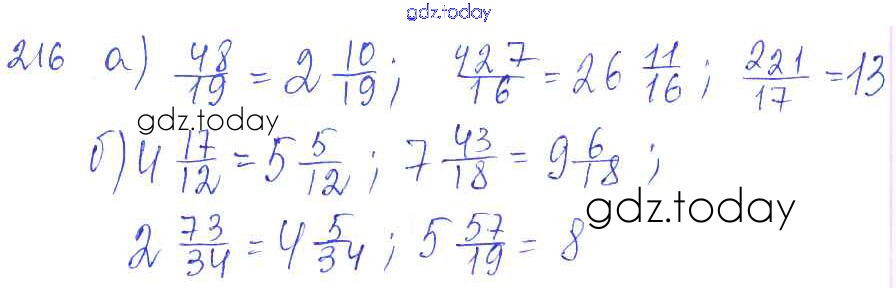 gdz.today
216 а) 48/19 = 2 10/19; 427/16 = 26 11/16; 221/17 = 13
gdz.today
б) 4 17/12 = 5 5/12; 7 43/18 = 9 6/18;
gdz.today
2 73/34 = 4 5/34; 5 57/19 = 8